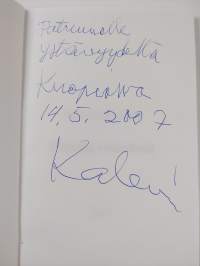 ystävyydellä
Kuopiossa
14.5.2007
Kalevi